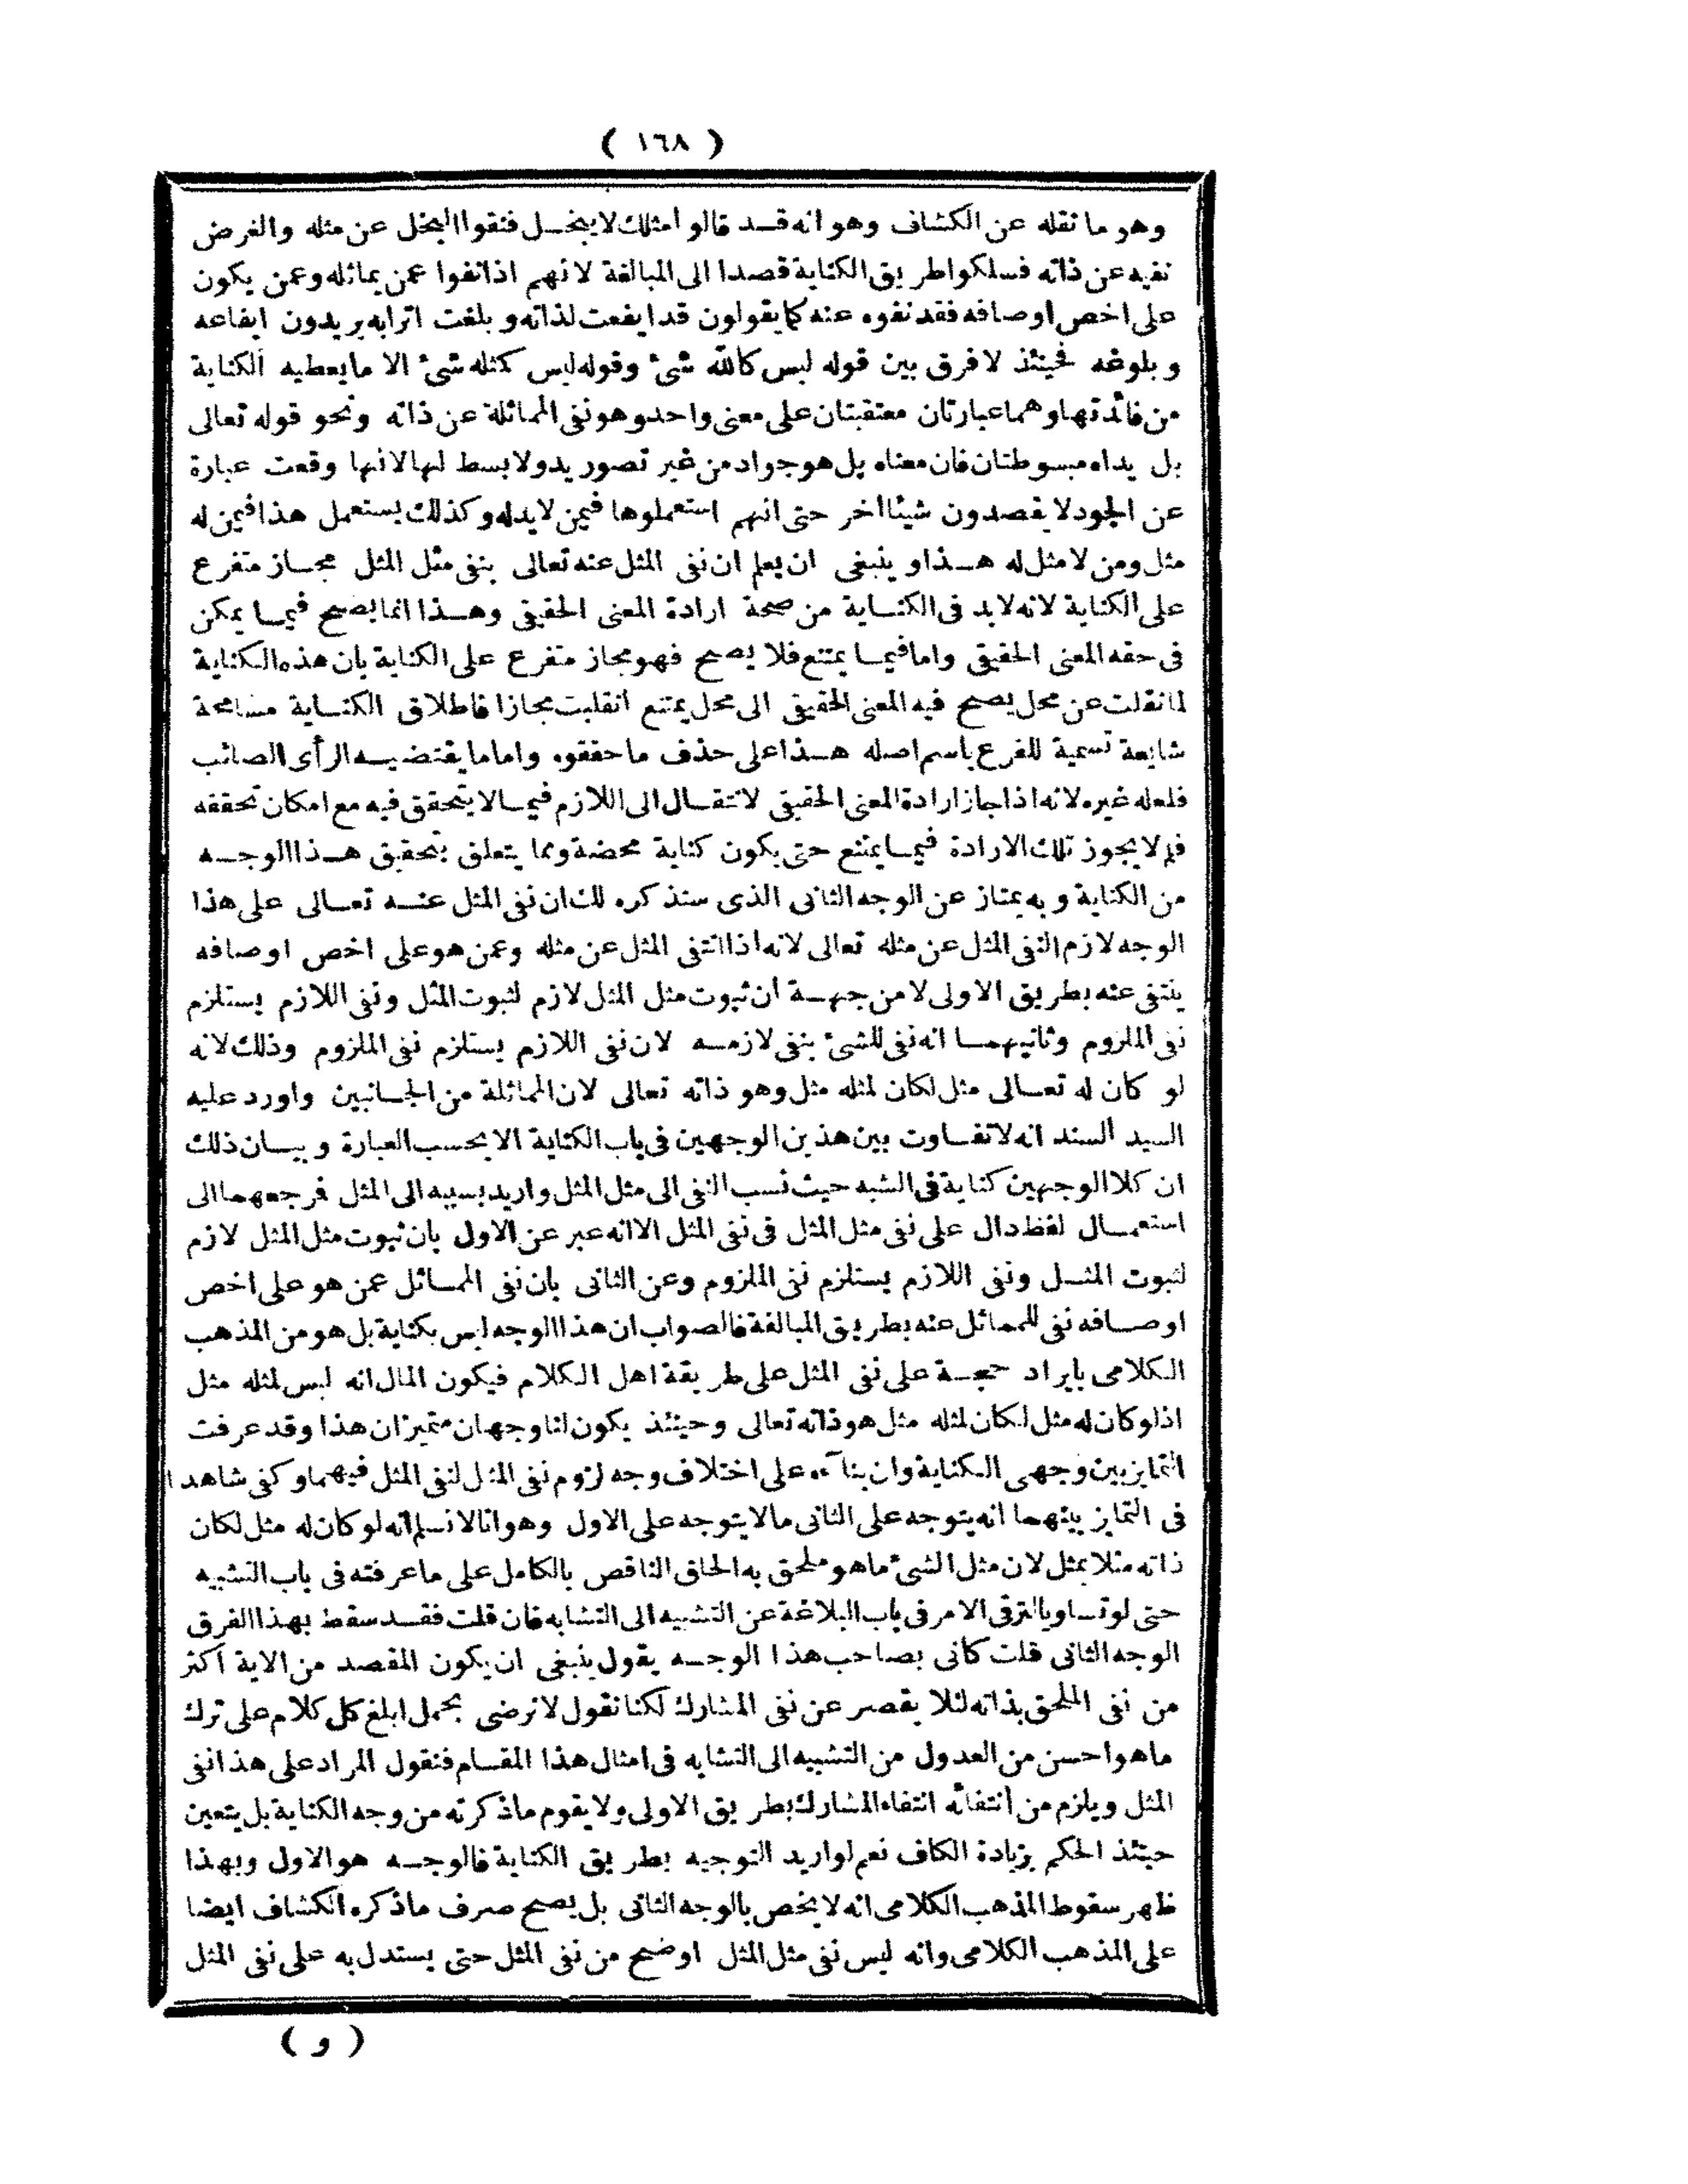 ( ١٦٨ )
وهو ما نقله عن الكشاف وهو انه قد قالوا مثلك لا يبخل فنفوا البخل عن مثله والغرض
نفيه عن ذاته فسلكوا طريق الكناية قصدا الى المبالغة لانهم اذا نفوا عمن يماثله وعمن يكون
على اخص اوصافه فقد نفوه عنه كما يقولون قد ايفعت لذاته وبلغت اترابه يريدون ايفاعه
وبلوغه فحينئذ لا فرق بين قوله ليس كالله شئ وقوله ليس كمثله شئ الا ما يعطيه الكناية
من فائدتها وهما عبارتان معتقبتان على معنى واحد وهو نفى المماثلة عن ذاته ونحو قوله تعالى
بل يداه مبسوطتان فان معناه بل هو جواد من غير تصور يد ولا بسط لها لانها وقعت عبارة
عن الجود لا يقصدون شيئا اخر حتى انهم استعملوها فيمن لا يد له وكذلك يستعمل هذا فيمن له
مثل ومن لا مثل له هذا و ينبغى ان يعلم ان نفى المثل عنه تعالى بنفى مثل المثل مجاز متفرع
على الكناية لانه لا بد فى الكناية من صحة ارادة المعنى الحقيقى وهذا انما يصح فيما يمكن
فى حقه المعنى الحقيقى واما فيما يمتنع فلا يصح فهو مجاز متفرع على الكناية بان هذه الكناية
لما نقلت عن محل يصح فيه المعنى الحقيقى الى محل يمتنع انقلبت مجازا فاطلاق الكناية مسامحة
شايعة تسمية للفرع باسم اصله هذا على حذف ما حققوه واما ما يقتضيه الرأى الصائب
فلعله غيره لانه اذا جاز ارادة المعنى الحقيقى لانتقال الى اللازم فيما لا يتحقق فيه مع امكان تحققه
فلم لا يجوز تلك الارادة فيما يمتنع حتى يكون كناية محضة ومما يتعلق بتحقيق هذا الوجه
من الكناية وبه يمتاز عن الوجه الثانى الذى سنذكره لك ان نفى المثل عنه تعالى على هذا
الوجه لازم النفى المثل عن مثله تعالى لانه اذا انتفى المثل عن مثله وعمن هو على اخص اوصافه
ينتفى عنه بطريق الاولى لا من جهة ان ثبوت مثل المثل لازم لثبوت المثل ونفى اللازم يستلزم
نفى الملزوم وثانيهما انه نفى للشئ بنفى لازمه لان نفى اللازم يستلزم نفى الملزوم وذلك لانه
لو كان له تعالى مثل لكان لمثله مثل وهو ذاته تعالى لان المماثلة من الجانبين واورد عليه
السيد السند انه لا تفاوت بين هذين الوجهين فى باب الكناية الا بحسب العبارة وبيان ذلك
ان كلا الوجهين كناية فى الشبه حيث نسب النفى الى مثل المثل واريد بسببه الى المثل فرجعهما الى
استعمال لفظ دال على نفى مثل المثل فى نفى المثل الا انه عبر عن الاول بان ثبوت مثل المثل لازم
لثبوت المثل ونفى اللازم يستلزم نفى الملزوم وعن الثانى بان نفى المماثل عمن هو على اخص
اوصافه نفى للمماثل عنه بطريق المبالغة فالصواب ان هذا الوجه ليس بكناية بل هو من المذهب
الكلامى بايراد حجة على نفى المثل على طريقة اهل الكلام فيكون المال انه ليس لمثله مثل
اذ لو كان له مثل لكان لمثله مثل هو ذاته تعالى وحينئذ يكون لنا وجهان متميزان هذا وقد عرفت
التمايز بين وجهى الكناية وان بناءه على اختلاف وجه لزوم نفى المثل لنفى المثل فيهما وكفى شاهدا
فى التمايز بينهما انه يتوجه على الثانى ما لا يتوجه على الاول وهو انا لا نسلم انه لو كان له مثل لكان
ذاته مثلا بمثل لان مثل الشئ ما هو ملحق به الحاق الناقص بالكامل على ما عرفته فى باب التشبيه
حتى لو تساويا لترقى الامر فى باب البلاغة عن التشبيه الى التشابه فان قلت فقد سقط بهذا الفرق
الوجه الثانى قلت كأنى بصاحب هذا الوجه يقول ينبغى ان يكون المقصد من الاية اكثر
من نفى الملحق بذاته لئلا يقصر عن نفى المشارك لكنا نقول لا نرضى بحمل ابلغ كل كلام على ترك
ما هو احسن من العدول من التشبيه الى التشابه فى امثال هذا المقام فنقول المراد على هذا نفى
المثل ويلزم من انتفائه انتفاء المشارك بطريق الاولى ولا يقوم ماذكرته من وجه الكناية بل يتعين
حينئذ الحكم بزيادة الكاف نعم لو اريد التوجيه بطريق الكناية فالوجه هو الاول وبهذا
ظهر سقوط المذهب الكلامى انه لا يخص بالوجه الثانى بل يصح صرف ما ذكره الكشاف ايضا
على المذهب الكلامى وانه ليس نفى مثل المثل اوضح من نفى المثل حتى يستدل به على نفى المثل
( و )